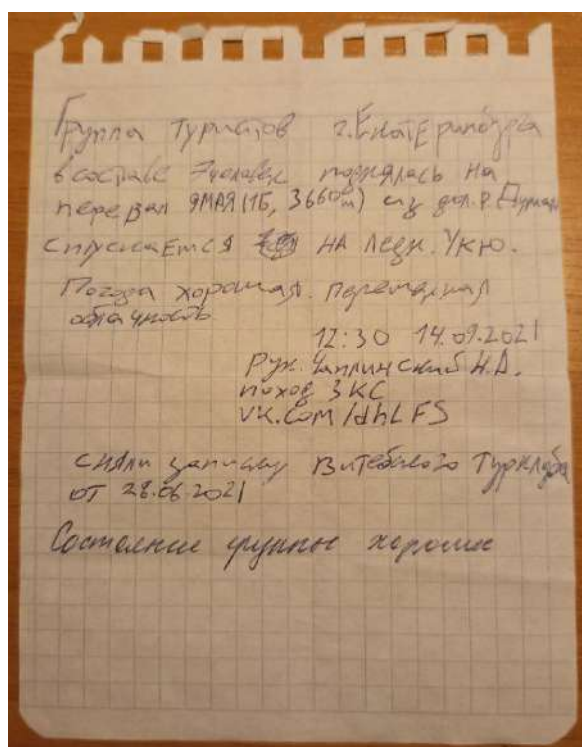 Группа туристов г. Екатеринбурга
в составе 7 человек поднялась на
перевал 9МАЯ (1Б, 3660m) из дол. р.
спускается НА ледн. Укю.
Погода хорошая. переменная
облачность
12:30 14.09.2021
Рук. Чаплинский Н.А.
поход 3 КС
VK.com/dhLFS
сняли записку Витебского Турклуба
от 28.06.2021
Состояние группы хорошее